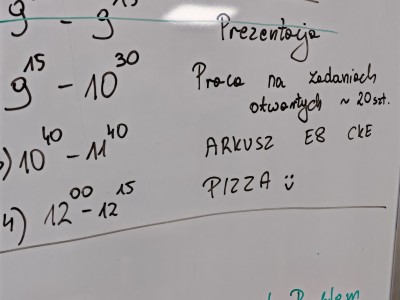 9 - 9¹⁵
9¹⁵ - 10³⁰
) 10⁴⁰ - 11⁴⁰
4) 12⁰⁰ - 12¹⁵
Prezentacja
Praca na zadaniach
otwartych ~ 20 szt.
ARKUSZ E8 CKE
PIZZA :)
Problem